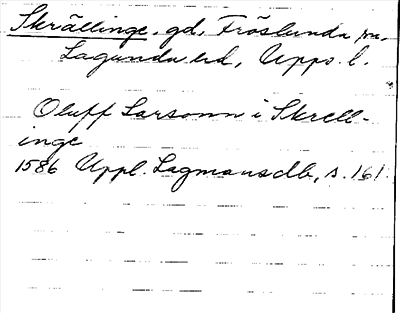 Skrällinge, gd, Fröslunda sn,
Lagunda hd, Upps. l.
Oluff Larsonn i Skrell-
inge
1586 Uppl. Lagmansdb, s. 161.